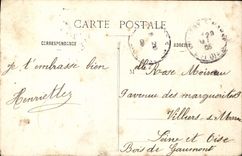 CARTE POSTALE
CORRESPONDANCE
ADRESSE
je t'embrasse bien
Henriette
Melle Rose Moiseau
7 avenue des marguerites
Villiers s/ Marne
Seine et Oise
Bois de Gaumont